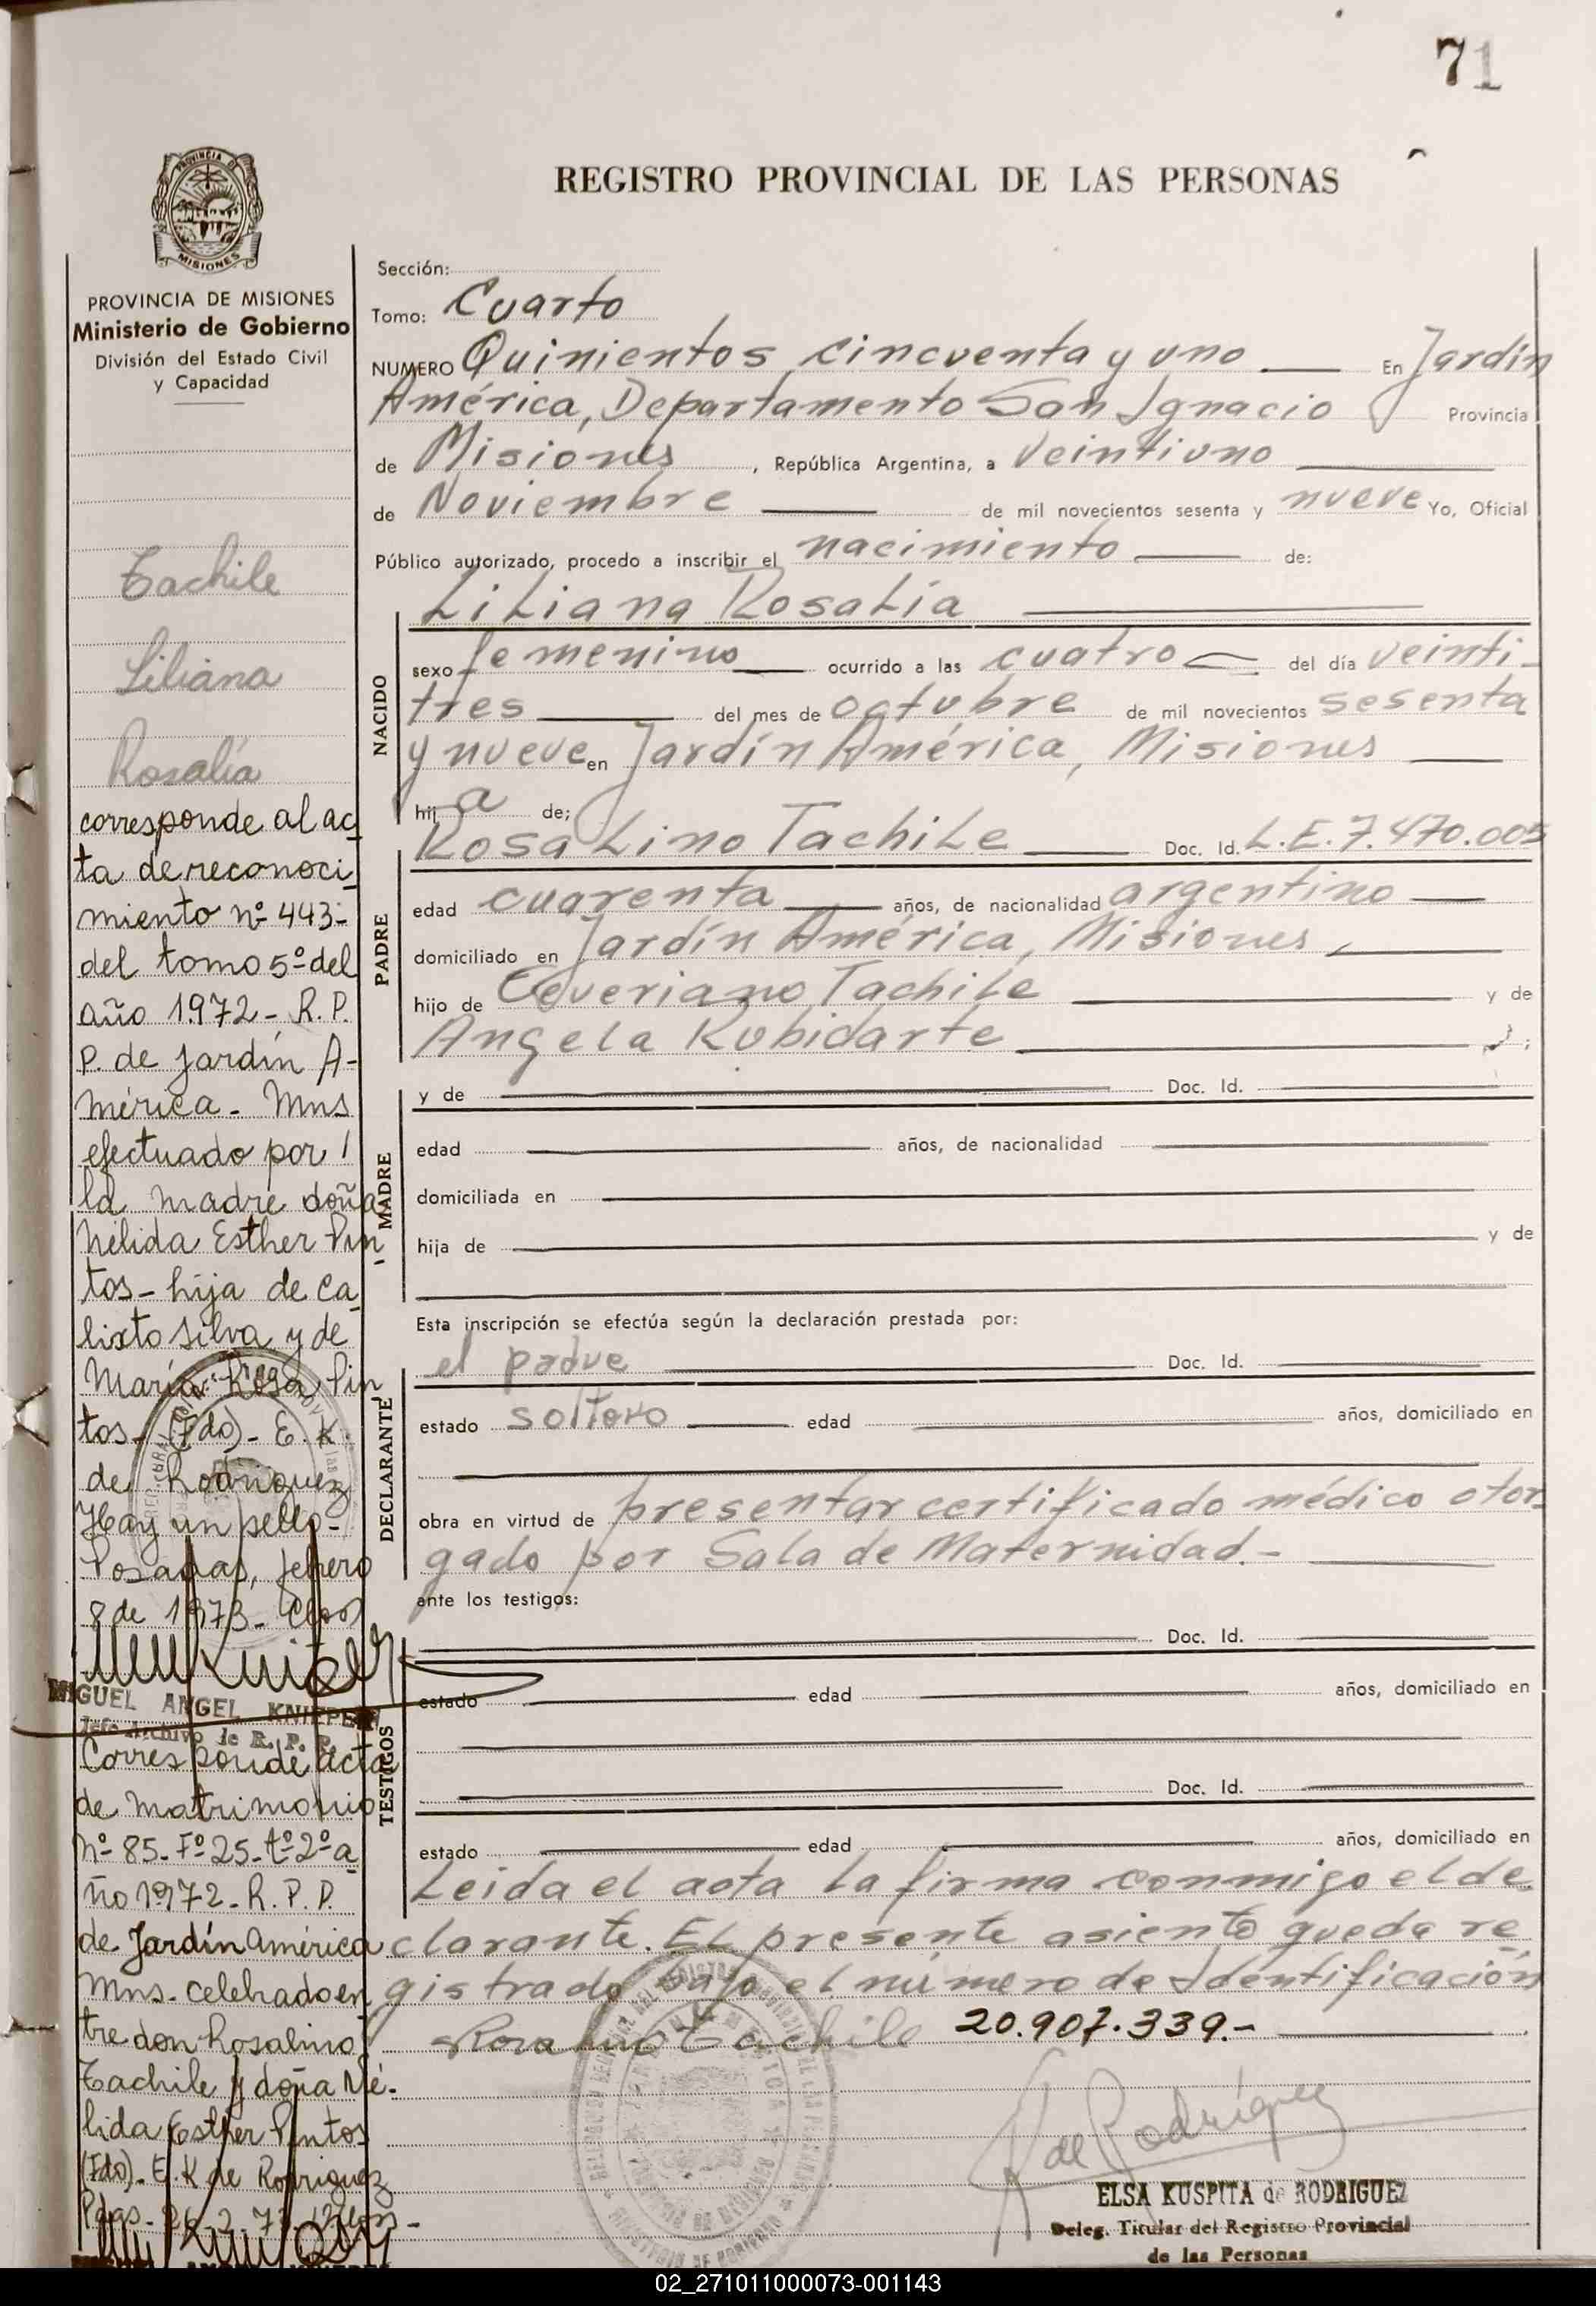 71
REGISTRO PROVINCIAL DE LAS PERSONAS
MISIONES
PROVINCIA DE MISIONES
Ministerio de Gobierno
División del Estado Civil
y Capacidad
Tachile
Liliana
Rosalía
corresponde al ac
ta de reconoci
miento nº 443-
del tomo 5º del
año 1972 - R. P.
P. de Jardín A-
mérica - Mns
efectuado por /
la madre doña
Nélida Esther Pin
tos - hija de Ca
lixto Silva y de
María Rosa Pin
tos - (Fdo) - E. K.
de Rodriguez
Hay un sello -
Posadas, febrero
8 de 1973 -
MIGUEL ANGEL
Jefe Archivo de R. P. P.
Corresponde acta
de matrimonio
nº 85 - Fº 25 - tº 2º a
ño 1972 - R. P. P.
de Jardín América
Mns - celebrado en
tre don Rosalino
Tachile y doña Né-
lida Esther Pintos
(Fdo) - E. K de Rodriguez
Pdas -
Sección:
Tomo: Cuarto
NUMERO Quinientos cincuenta y uno En Jardín
América, Departamento San Ignacio Provincia
de Misiones, República Argentina, a veintiuno
de Noviembre de mil novecientos sesenta y nueve Yo, Oficial
Público autorizado, procedo a inscribir el nacimiento de:
Liliana Rosalía
NACIDO
sexo femenino ocurrido a las cuatro del día veinti-
tres del mes de octubre de mil novecientos sesenta
y nueve en Jardín América, Misiones
hij a de;
Rosa Lino Tachile Doc. Id. L.E. 7.470.005
PADRE
edad cuarenta años, de nacionalidad argentino
domiciliado en Jardín América, Misiones,
hijo de Ceveriano Tachile y de
Angela Rubidarte ;
y de Doc. Id.
MADRE
edad años, de nacionalidad
domiciliada en
hija de y de
Esta inscripción se efectúa según la declaración prestada por:
el padre Doc. Id.
DECLARANTE
estado soltero edad años, domiciliado en
obra en virtud de presentar certificado médico otor
gado por Sala de Maternidad.-
ante los testigos:
Doc. Id.
TESTIGOS
estado edad años, domiciliado en
Doc. Id.
estado edad años, domiciliado en
Leida el acta la firma conmigo el de
clarante. El presente asiento queda re
gistrado bajo el número de Identificación
Rosalino Tachile 20.907.339.-
de Rodríguez
ELSA KUSPITA de RODRIGUEZ
Deleg. Titular del Registro Provincial
de las Personas
02_271011000073-001143